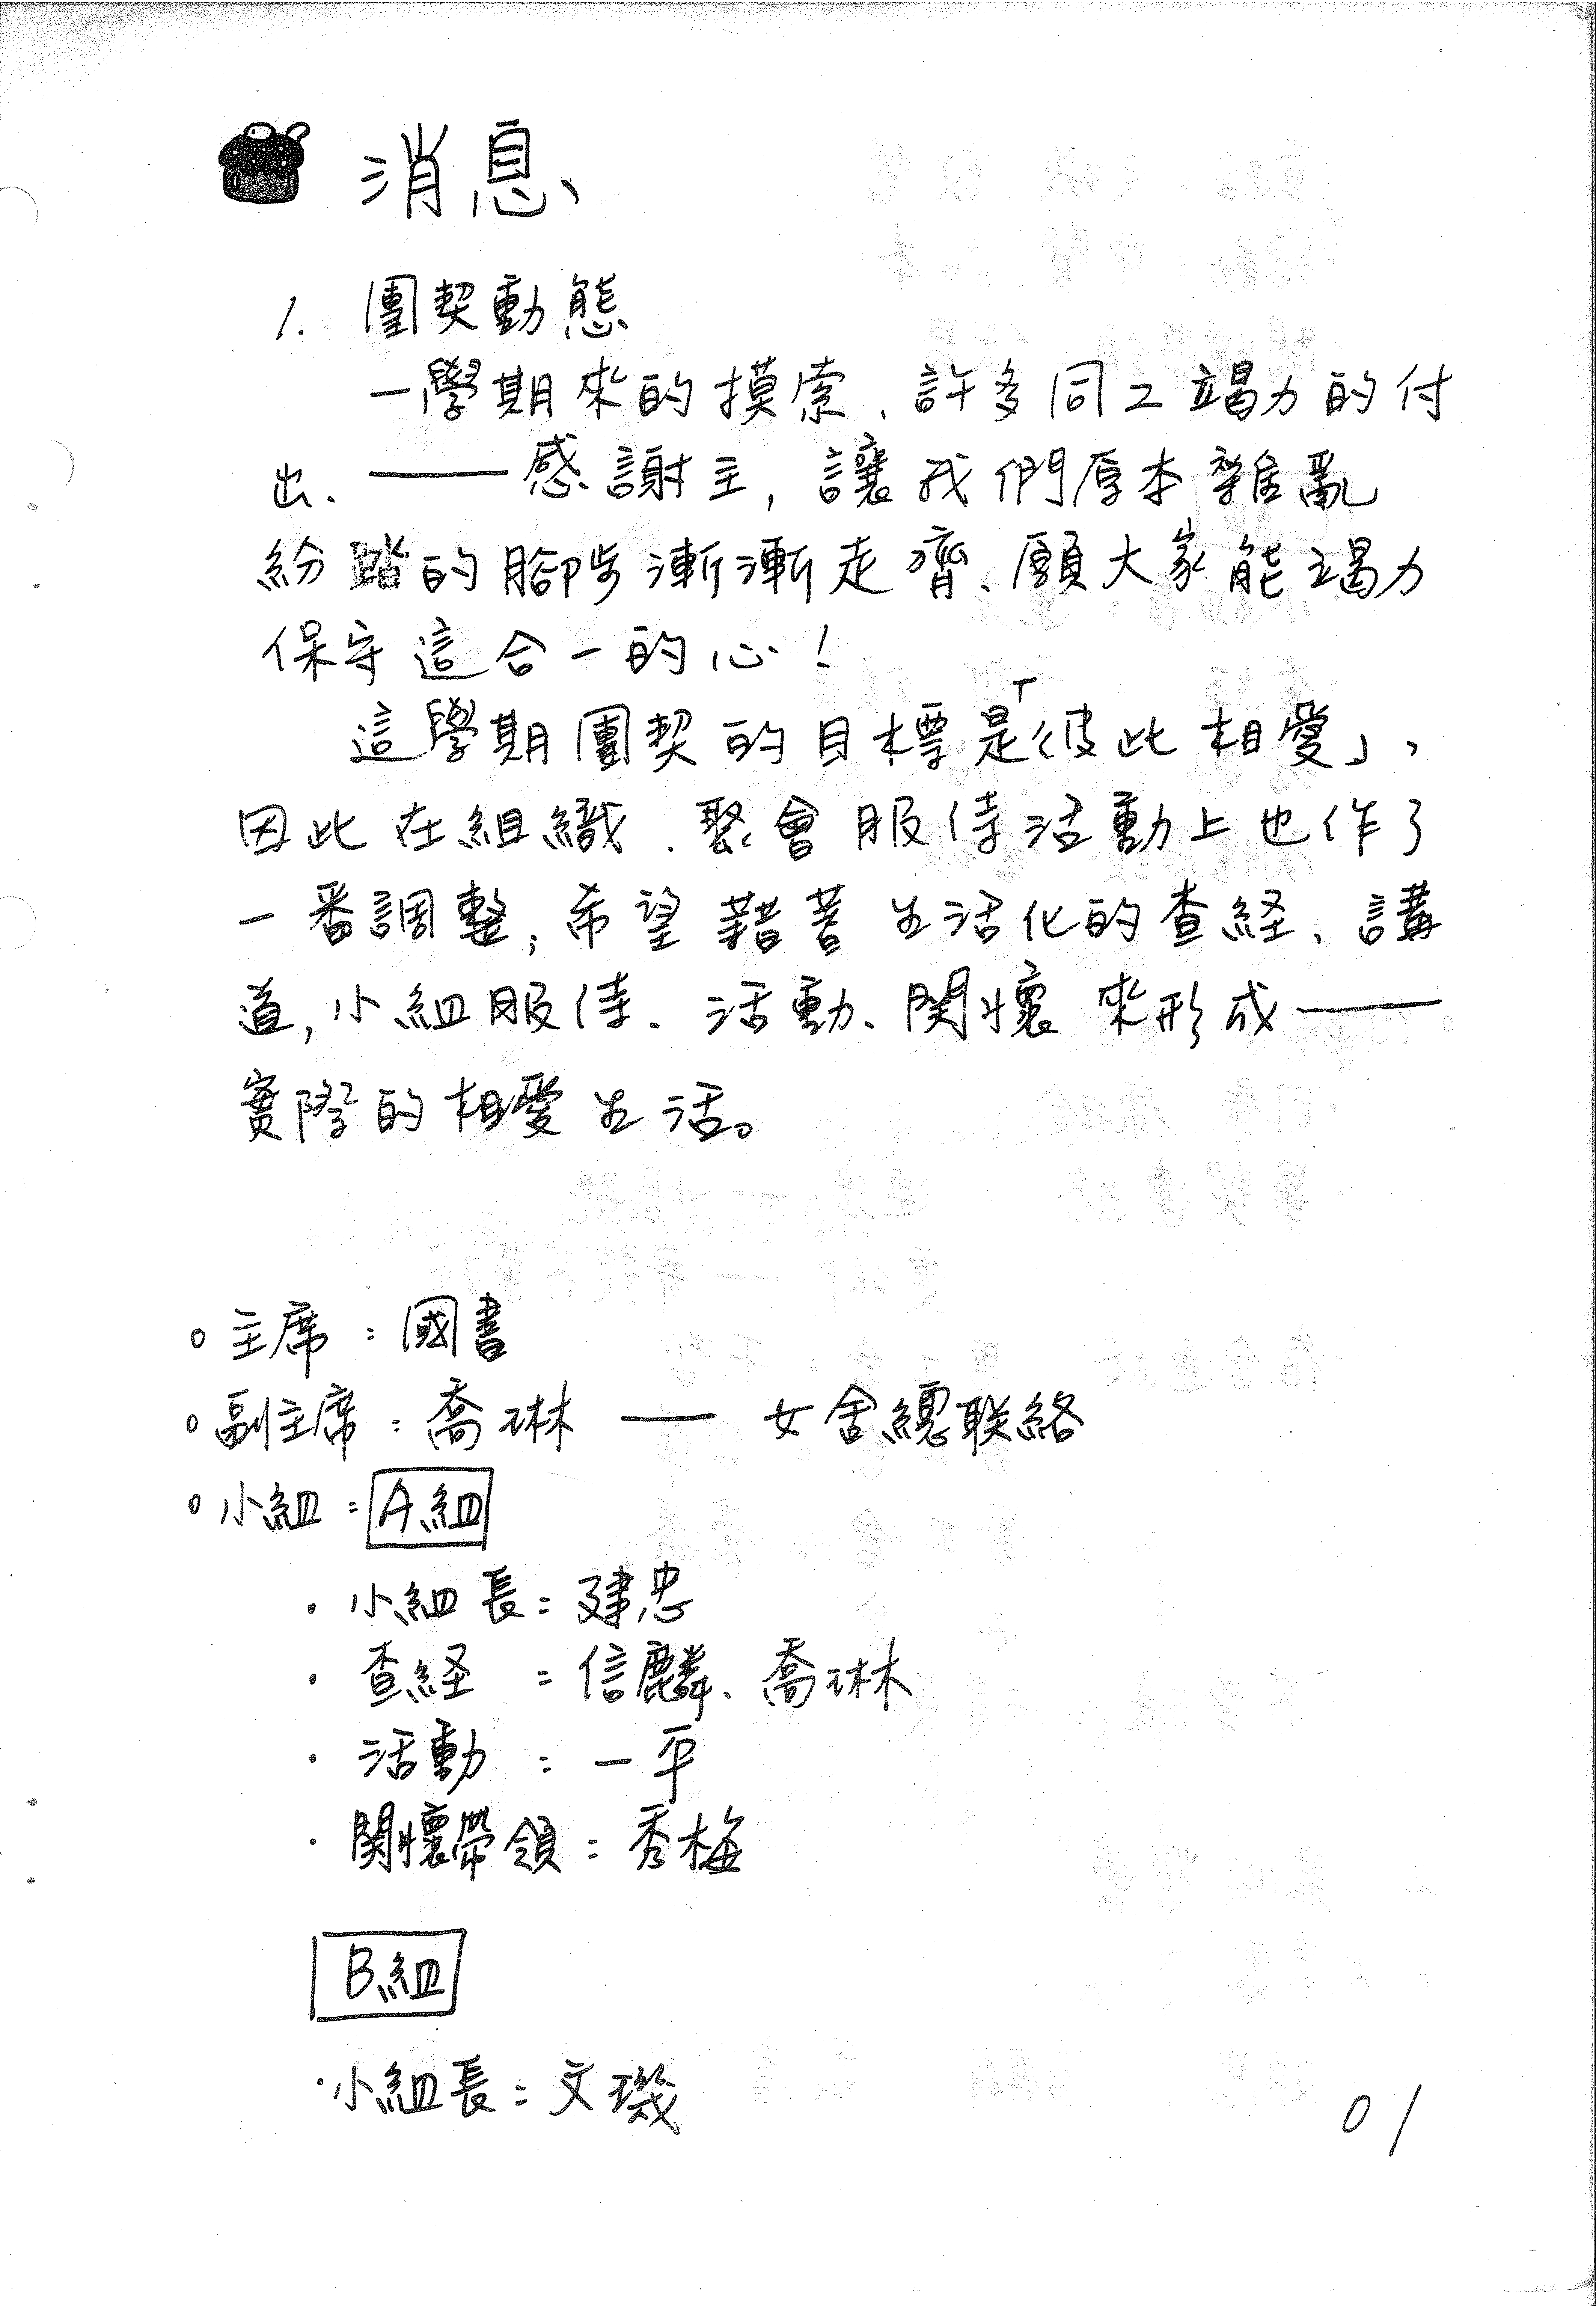 消息、
1. 團契動態
一學期來的摸索、許多同工竭力的付
出、——感謝主,讓我們原本雜亂
紛踏的腳步漸漸走齊、願大家能竭力
保守這合一的心!
這學期團契的目標是「彼此相愛」,
因此在組織、聚會服侍活動上也作了
一番調整;希望藉著生活化的查経、講
道,小組服侍、活動、関懷來形成——
實際的相愛生活。
○主席:國書
○副主席:喬琳——女舍總联絡
○小組:A組
·小組長:建忠
·查経:信麟、喬琳
·活動:一平
·関懷帶領:秀梅
B組
·小組長:文璣
01